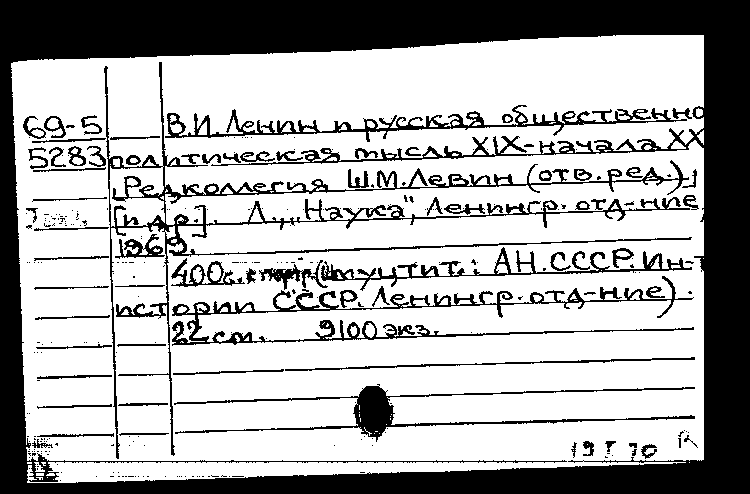 69-5 В.И. Ленин и русская общественно
5283 политическая мысль XIX-начала XX
[Редколлегия Ш.М. Левин (отв. ред.)
[и др.]. Л., „Наука", Ленингр. отд-ние,
1969.
400 с. (тит.: АН. СССР. Ин-т
истории СССР. Ленингр. отд-ние).
22 см. 9100 экз.
19 I 70
12